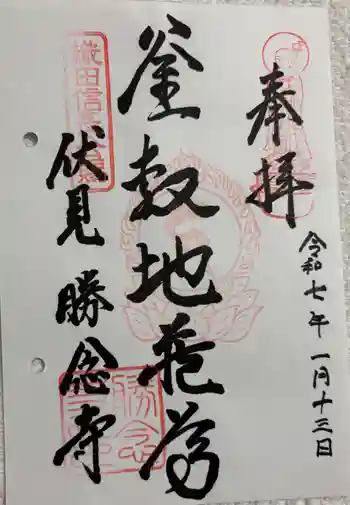 奉拝
令和七年一月十三日
釜敷地蔵尊
伏見 勝念寺
織田信長公